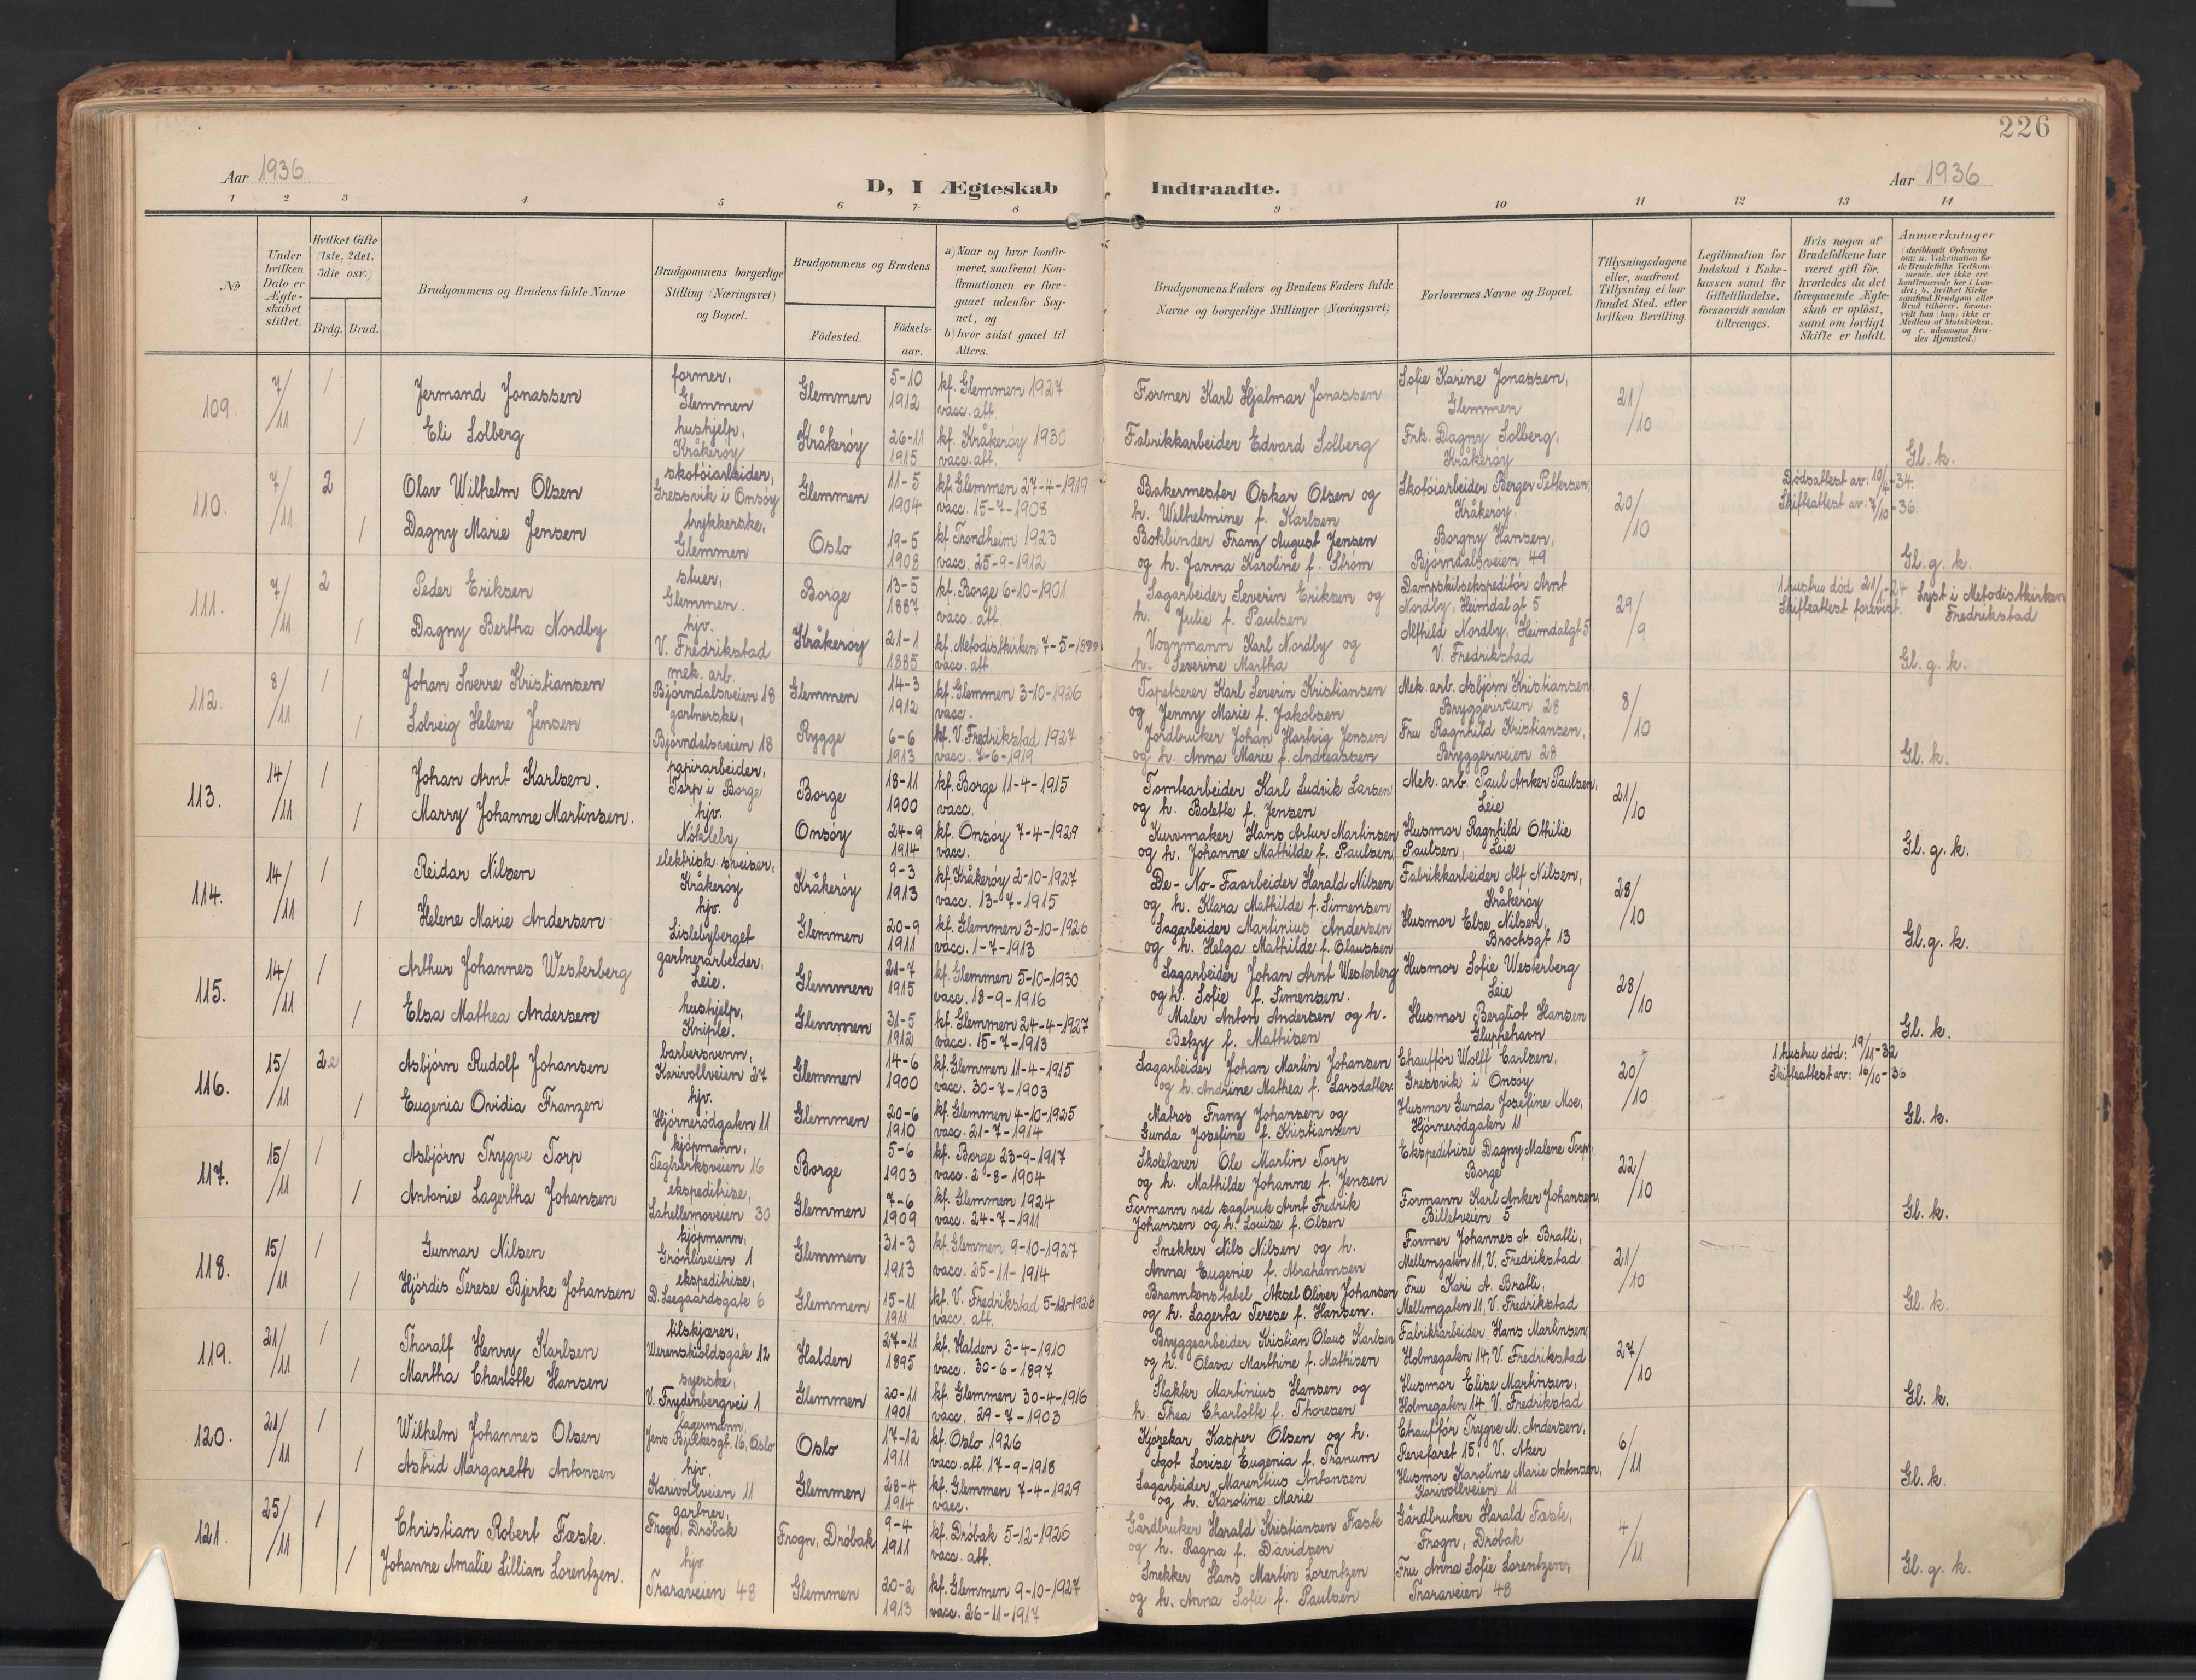 226
Aar 1936
D, I Ægteskab Indtraadte.
Aar 1936
1 2 3 4 5 6 7 8 9 10 11 12 13 14
No
Under hvilken Dato er Ægteskabet stiftet.
Hvilket Gifte (1ste, 2det, 3die osv.)
Brdg. Brud.
Brudgommens og Brudens fulde Navne
Brudgommens borgerlige Stilling (Næringsvei) og Bopæl.
Brudgommens og Brudens
Födested.
Födselsaar.
a) Naar og hvor konfirmeret, saafremt Konfirmationen er foregaaet udenfor Sognet, og
b) hvor sidst gaaet til Alters.
Brudgommens Faders og Brudens Faders fulde Navne og borgerlige Stillinger (Næringsvei)
Forlovernes Navne og Bopæl.
Tillysningsdagene eller, saafremt Tillysning ei har fundet Sted, efter hvilken Bevilling.
Legitimation for Indskud i Enkekassen samt for Giftetilladelse, forsaavidt saadan tiltrænges.
Hvis nogen af Brudefolkene har været gift för, hvorledes da det foregaaende Ægteskab er oplöst, samt om lovligt Skifte er holdt.
Anmærkninger (deriblandt Oplysning om: a. Vakcination for de Brudefolks Vedkommende, der ikke ere konfirmerede her i Landet; b. hvilket Kirkesamfund Brudgom eller Brud tilhörer, forsaavidt han (hun) ikke er Medlem af Statskirken, og c. udensogns Brudes Hjemsted.)
109. 7/11 1 Jermand Jonassen former, Glemmen Glemmen 5-10 1912 kf. Glemmen 1927 vacc. att. Former Karl Hjalmar Jonassen Sofie Karine Jonassen, Glemmen 21/10
1 Eli Solberg hushjelp, Kråkerøy Kråkerøy 26-11 1915 kf. Kråkerøy 1930 vacc. att. Fabrikkarbeider Edvard Solberg Frk. Dagny Solberg, Kråkerøy Gl. k.
110. 7/11 2 Olav Wilhelm Olsen skotöiarbeider, Gressvik i Onsøy Glemmen 11-5 1904 kf. Glemmen 27-4-1919 vacc. 15-7-1908 Bakermester Oskar Olsen og h. Wilhelmine f. Karlsen Skotöiarbeider Berger Pettersen, Kråkerøy. 20/10 Dödsattest av: 10/4-34. Skifteattest av: 7/10-36.
1 Dagny Marie Jensen trykkerske, Glemmen Oslo 19-5 1908 kf. Trondheim 1923 vacc. 25-9-1912 Bokbinder Franz August Jensen og h. Janna Karoline f. Strøm Borgny Hansen, Bjørndalsveien 49 Gl. g. k.
111. 7/11 2 Peder Eriksen stuer, Glemmen. Borge 13-5 1887 kf. Borge 6-10-1901 vacc. att. Sagarbeider Severin Eriksen og h. Julie f. Paulsen Dampskibsekspeditör Arnt Nordby, Heimdal gt 5 29/9 1 hustru död 21/1-24 Skifteattest forevist. Lyst i Metodistkirken Fredrikstad
1 Dagny Bertha Nordby hjv. V. Fredrikstad Kråkerøy 21-1 1885 kf. Metodistkirken 7-5-1899 vacc. att. Vognmann Karl Nordby og h. Severine Martha Alfhild Nordby, Heimdalgt 5 V. Fredrikstad Gl. g. k.
112. 8/11 1 Johan Sverre Kristiansen mek. arb. Bjørndalsveien 18 Glemmen 14-3 1912 kf. Glemmen 3-10-1926 vacc. Tapetserer Karl Severin Kristiansen og Jenny Marie f. Jakobsen Mek. arb. Asbjørn Kristiansen, Bryggeriveien 28 8/10
1 Solveig Helene Jensen gartnerske, Bjørndalsveien 18 Rygge 6-6 1913 kf. V. Fredrikstad 1927 vacc. 7-6-1919 Jordbruker Johan Hartvig Jensen og h. Anna Marie f. Andreassen Fru Ragnhild Kristiansen, Bryggeriveien 28 Gl. k.
113. 14/11 1 Johan Arnt Karlsen. papirarbeider, Torp i Borge Borge 18-11 1900 kf. Borge 11-4-1915 vacc. Tomtearbeider Karl Ludvik Larsen og h. Bolette f. Jensen Mek. arb. Paul Anker Paulsen, Leie 21/10
1 Marry Johanne Martinsen. hjv. Nökleby Onsøy 24-9 1914 kf. Onsøy 7-4-1929 vacc. Kurvmaker Hans Artur Martinsen og h. Johanne Mathilde f. Paulsen Husmor Ragnhild Othilie Paulsen, Leie Gl. g. k.
114. 14/11 1 Reidar Nilsen elektrisk sveiser, Kråkerøy Kråkerøy 9-3 1913 kf. Kråkerøy 2-10-1927 vacc. 13-7-1915 De-No-Faarbeider Harald Nilsen og h. Klara Mathilde f. Simensen Fabrikkarbeider Alf Nilsen, Kråkerøy 28/10
1 Helene Marie Andersen hjv. Lislebyberget Glemmen 20-9 1911 kf. Glemmen 3-10-1926 vacc. 1-7-1913 Sagarbeider Martinius Andersen og h. Helga Mathilde f. Olaussen Husmor Else Nilsen, Brochsgt 13 Gl. g. k.
115. 14/11 1 Arthur Johannes Westerberg gartnerarbeider, Leie. Glemmen 21-7 1915 kf. Glemmen 5-10-1930 vacc. 18-9-1916 Sagarbeider Johan Arnt Westerberg og h. Sofie f. Simensen. Husmor Sofie Westerberg Leie 28/10
1 Elsa Mathea Andersen hushjelp, Kniple. Glemmen 31-5 1912 kf. Glemmen 24-4-1927 vacc. 15-7-1913 Maler Anton Andersen og h. Betzy f. Mathisen Husmor Bergliot Hansen Gluppehavn Gl. k.
116. 15/11 2 Asbjørn Rudolf Johansen barbersvenn, Karivollveien 27 Glemmen 14-6 1900 kf. Glemmen 11-4-1915 vacc. 30-7-1903 Sagarbeider Johan Martin Johansen og h. Andrine Mathea f. Larsdatter. Chaufför Wolff Carlsen, Gressvik i Onsøy 20/10 1 hustru död: 19/11-32 Skifteattest av: 16/10-36
1 Eugenia Ovidia Franzen hjv. Hjørnerödgaten 11 Glemmen 20-6 1910 kf. Glemmen 4-10-1925 vacc. 21-7-1914 Matros Franz Johansen og Gunda Josefine f. Kristiansen Husmor Gunda Josefine Moe, Hjørnerödgaten 11 Gl. k.
117. 15/11 1 Asbjørn Trygve Torp kjöpmann, Teglverksveien 16 Borge 5-6 1903 kf. Borge 23-9-1917 vacc. 2-8-1904 Skolelærer Ole Martin Torp og h. Mathilde Johanne f. Jensen Ekspeditrise Dagny Malene Torp, Borge 22/10
1 Antonie Lagertha Johansen ekspeditrise, Lahellemoveien 30 Glemmen 7-6 1909 kf. Glemmen 1924 vacc. 24-7-1911 Formann ved sagbruk Arnt Fredrik Johansen og h. Louise f. Olsen Formann Karl Anker Johansen, Billetveien 5 Gl. k.
118. 15/11 1 Gunnar Nilsen kjöpmann, Grönliveien 1 Glemmen 31-3 1913 kf. Glemmen 9-10-1927 vacc. 25-11-1914 Snekker Nils Nilsen og h. Anna Eugenie f. Abrahamsen Former Johannes A. Bratli, Mellemgaten 11, V. Fredrikstad. 21/10
1 Hjördis Terese Bjerke Johansen ekspeditrise, D. Leegaardsgate 6 Glemmen 15-11 1911 kf. V. Fredrikstad 5-12-1926 vacc. att. Brannkonstabel Aksel Oliver Johansen og h. Lagerta Terese f. Hansen. Fru Kari A. Bratli, Mellemgaten 11, V. Fredrikstad Gl. k.
119. 21/11 1 Thoralf Henry Karlsen tilskjærer, Werenskioldsgate 12 Halden 27-11 1895 kf. Halden 3-4-1910 vacc. 30-6-1897 Bryggearbeider Kristian Olaus Karlsen og h. Olava Marthine f. Mathisen Fabrikkarbeider Hans Martinsen, Holmegaten 14, V. Fredrikstad 27/10
1 Martha Charlotte Hansen syerske, V. Frydenbergvei 1 Glemmen 20-11 1901 kf. Glemmen 30-4-1916 vacc. 29-7-1903 Slakter Martinius Hansen og h. Thea Charlotte f. Thoresen Husmor Elise Martinsen, Holmegaten 14, V. Fredrikstad Gl. k.
120. 21/11 1 Wilhelm Johannes Olsen lagermann, Jens Bjelkesgt. 16, Oslo Oslo 17-12 1911 kf. Oslo 1926 vacc. att. 17-9-1918 Kjörekar Kasper Olsen og h. Agot Lovise Eugenia f. Tranum Chaufför Trygve M. Andersen, Revefaret 15, V. Aker 6/11
1 Astrid Margareth Antonsen hjv. Karivollveien 11 Glemmen 28-4 1914 kf. Glemmen 7-4-1929 vacc. Sagarbeider Marentius Antonsen og h. Karoline Marie Husmor Karoline Marie Antonsen, Karivollveien 11 Gl. k.
121. 25/11 1 Christian Robert Fæste. gartner, Frogn, Dröbak Frogn, Dröbak 9-4 1911 kf. Dröbak 5-12-1926 vacc. att. Gårdbruker Harald Kristiansen Fæste og h. Ragna f. Davidsen Gårdbruker Harald Fæste, Frogn, Dröbak 4/11
1 Johanne Amalie Lillian Lorentzen. hjv. Traraveien 48 Glemmen 20-2 1913 kf. Glemmen 9-10-1927 vacc. 26-11-1917 Snekker Hans Martin Lorentzen og h. Anna Sofie f. Paulsen Fru Anna Sofie Lorentzen, Traraveien 48 Gl. g. k.